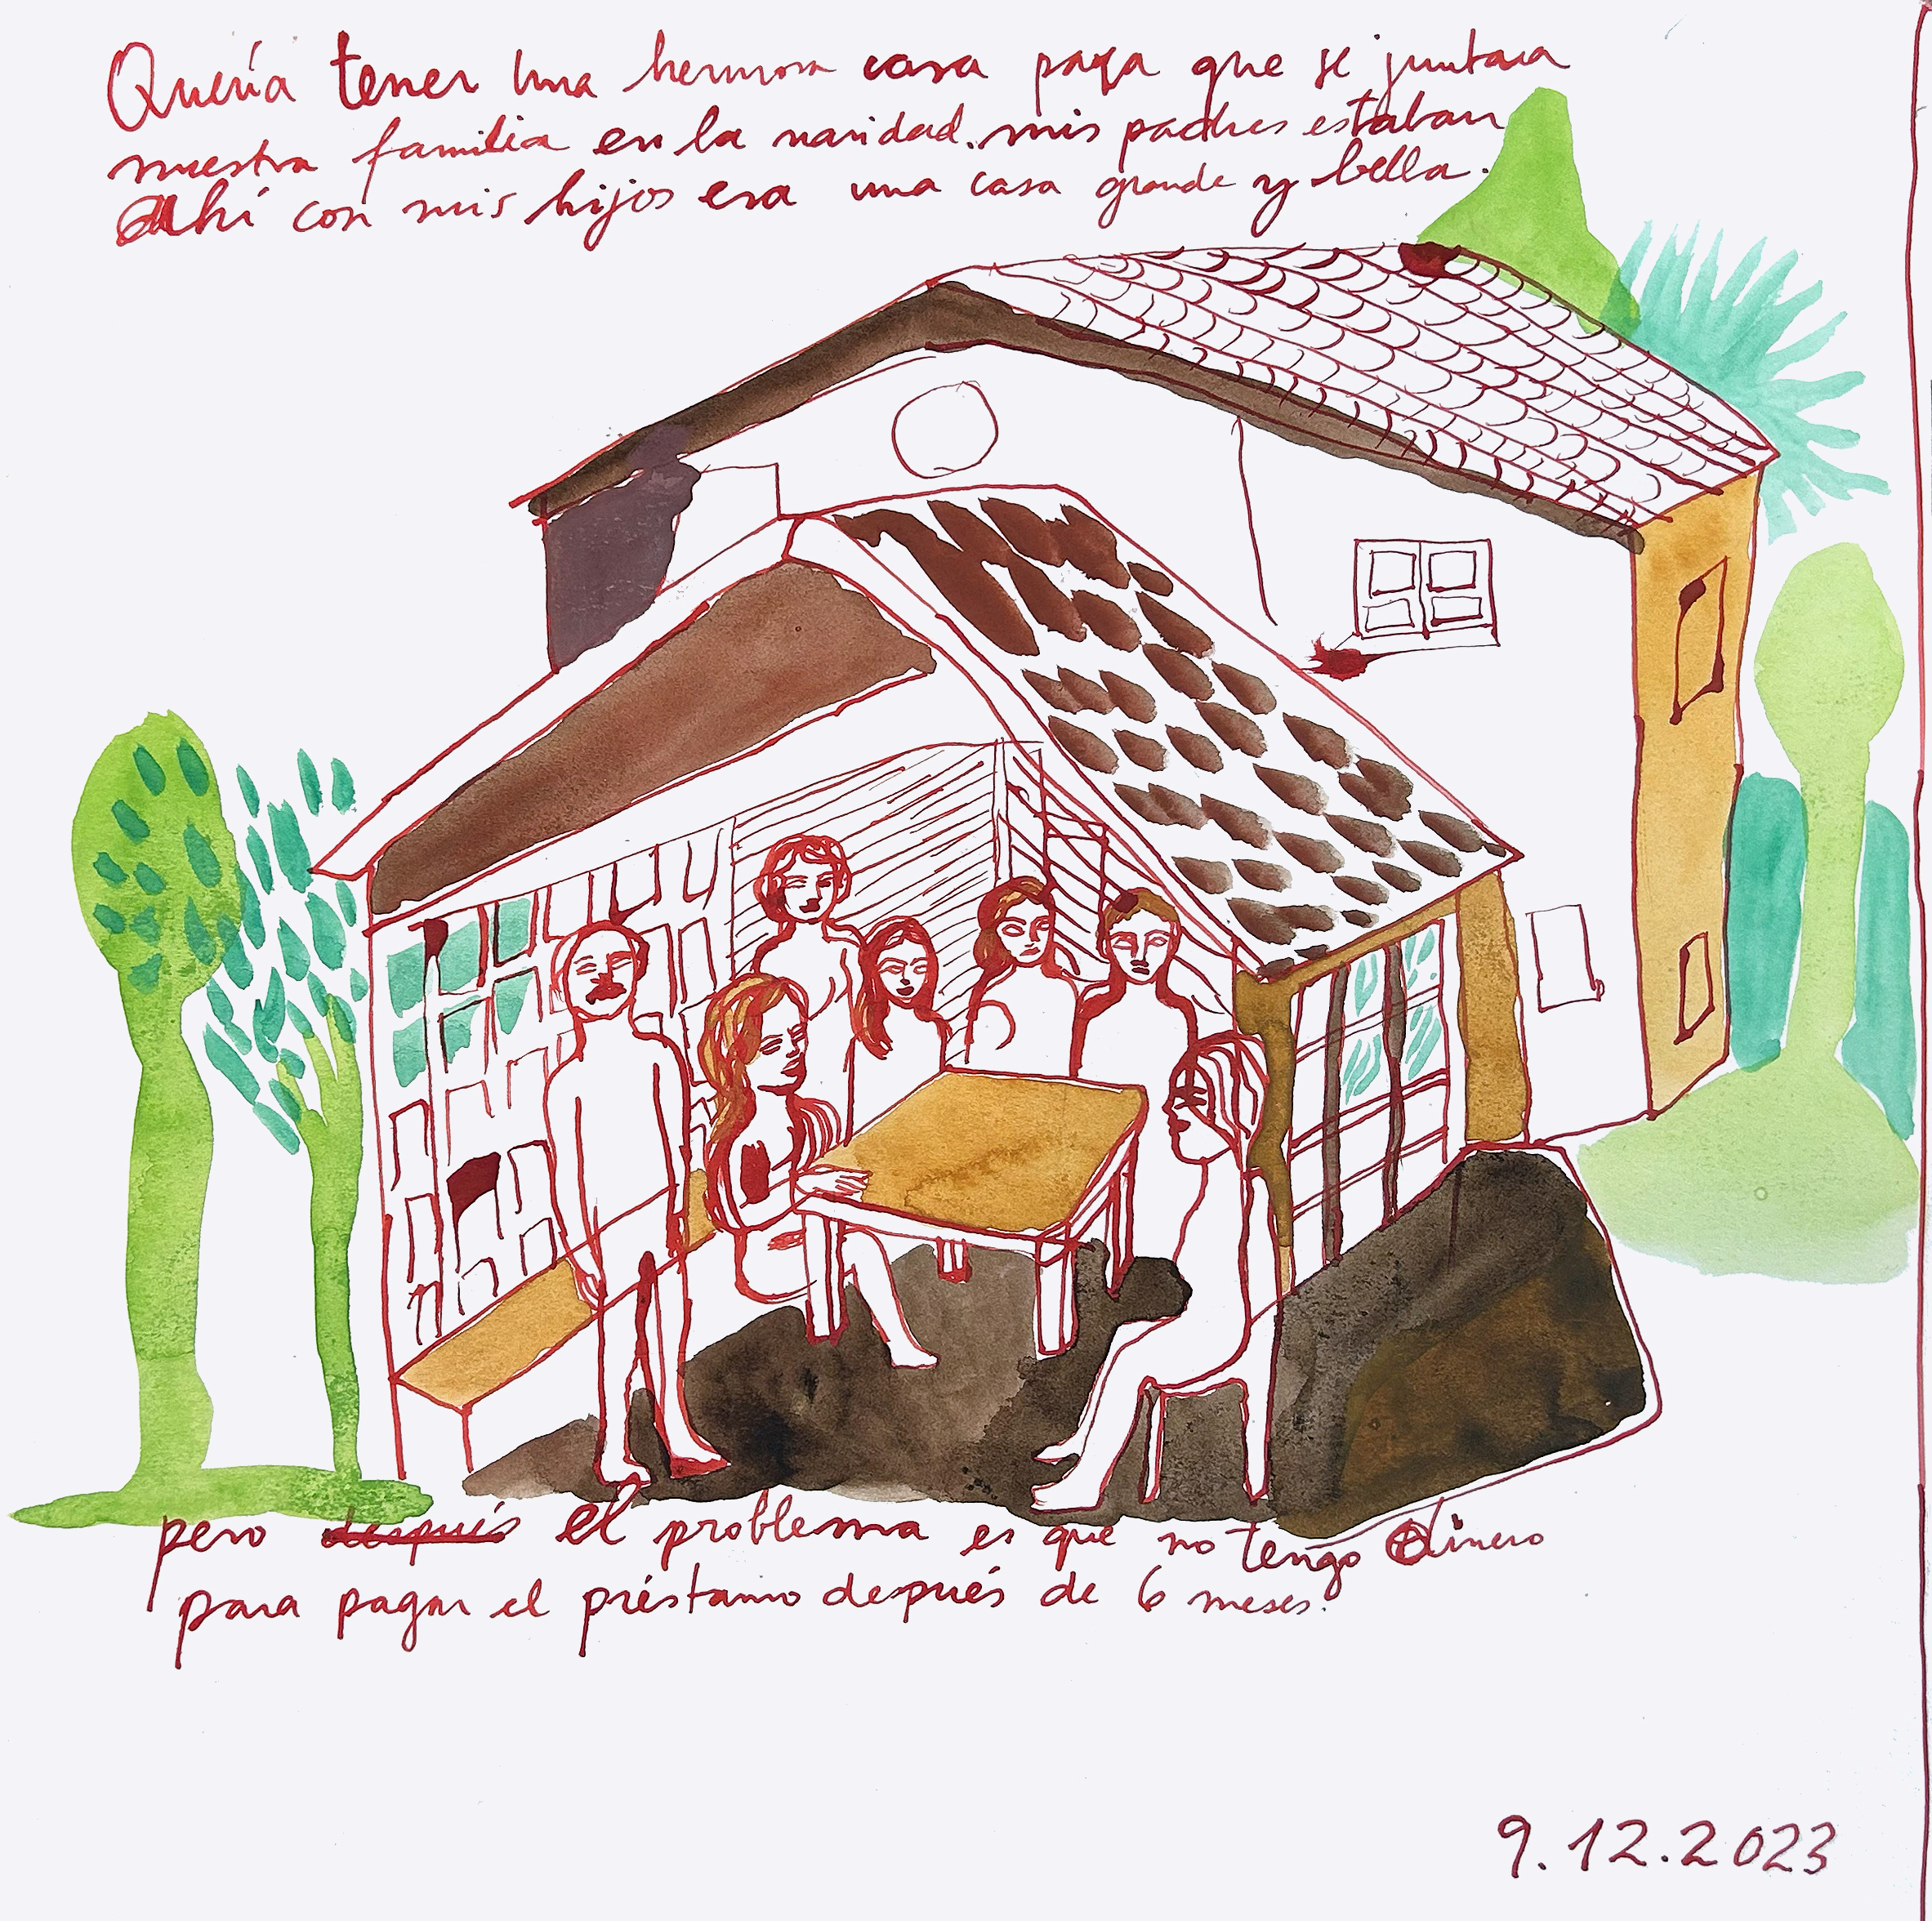 Quería tener una hermosa casa para que se juntara
nuestra familia en la navidad. mis padres estaban
ahí con mis hijos era una casa grande y bella.
pero después el problema es que no tengo dinero
para pagar el préstamo después de 6 meses.
9.12.2023